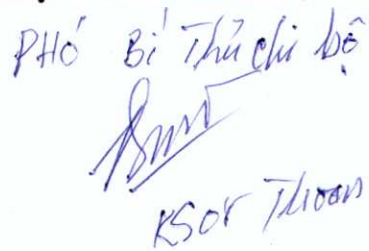 PHÓ Bí Thư chi bộ
KSOR Thoan